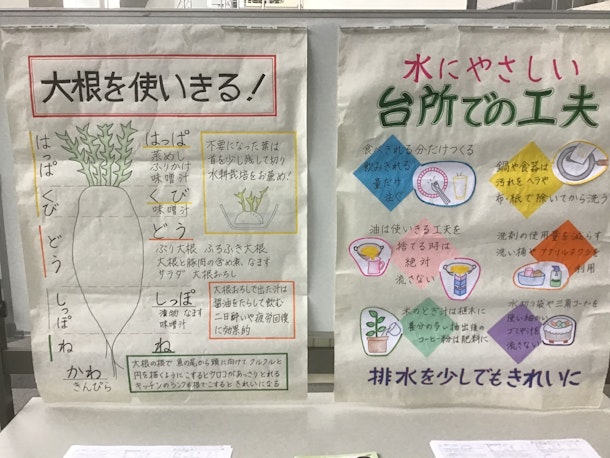 大根を使いきる!
はっぱ
くび
どう
しっぽ
ね
かわ
きんぴら
はっぱ
菜めし
ふりかけ
味噌汁
くび
味噌汁
どう
ぶり大根 ふろふき大根
大根と豚肉の含め煮、なます
サラダ 大根おろし
しっぽ
漬物 なます
味噌汁
ね
不要になった葉は
首を少し残して切り
水耕栽培をお薦め!
大根おろしで出た汁は
醤油をたらして飲む
二日酔いや疲労回復
に効果的
大根の根で魚の尾から頭に向けてクルクルと
円を描くようにこするとウロコがあっさりとれる
キッチンのシンクも根でこするときれいになる
水にやさしい
台所での工夫
食べきれる分だけつくる
飲みきれる
量だけ
注ぐ
鍋や食器は
汚れをヘラや
布・紙で除いてから洗う
油は使いきる工夫を
捨てる時は
絶対
流さない
洗剤の使用量を減らす
洗い桶やアクリルタワシを
利用
米のとぎ汁は植木に
養分の多い抽出後の
コーヒー粉は肥料に
水切り袋や三角コーナを
使い細かい
ゴミやけを
流さない
排水を少しでもきれいに